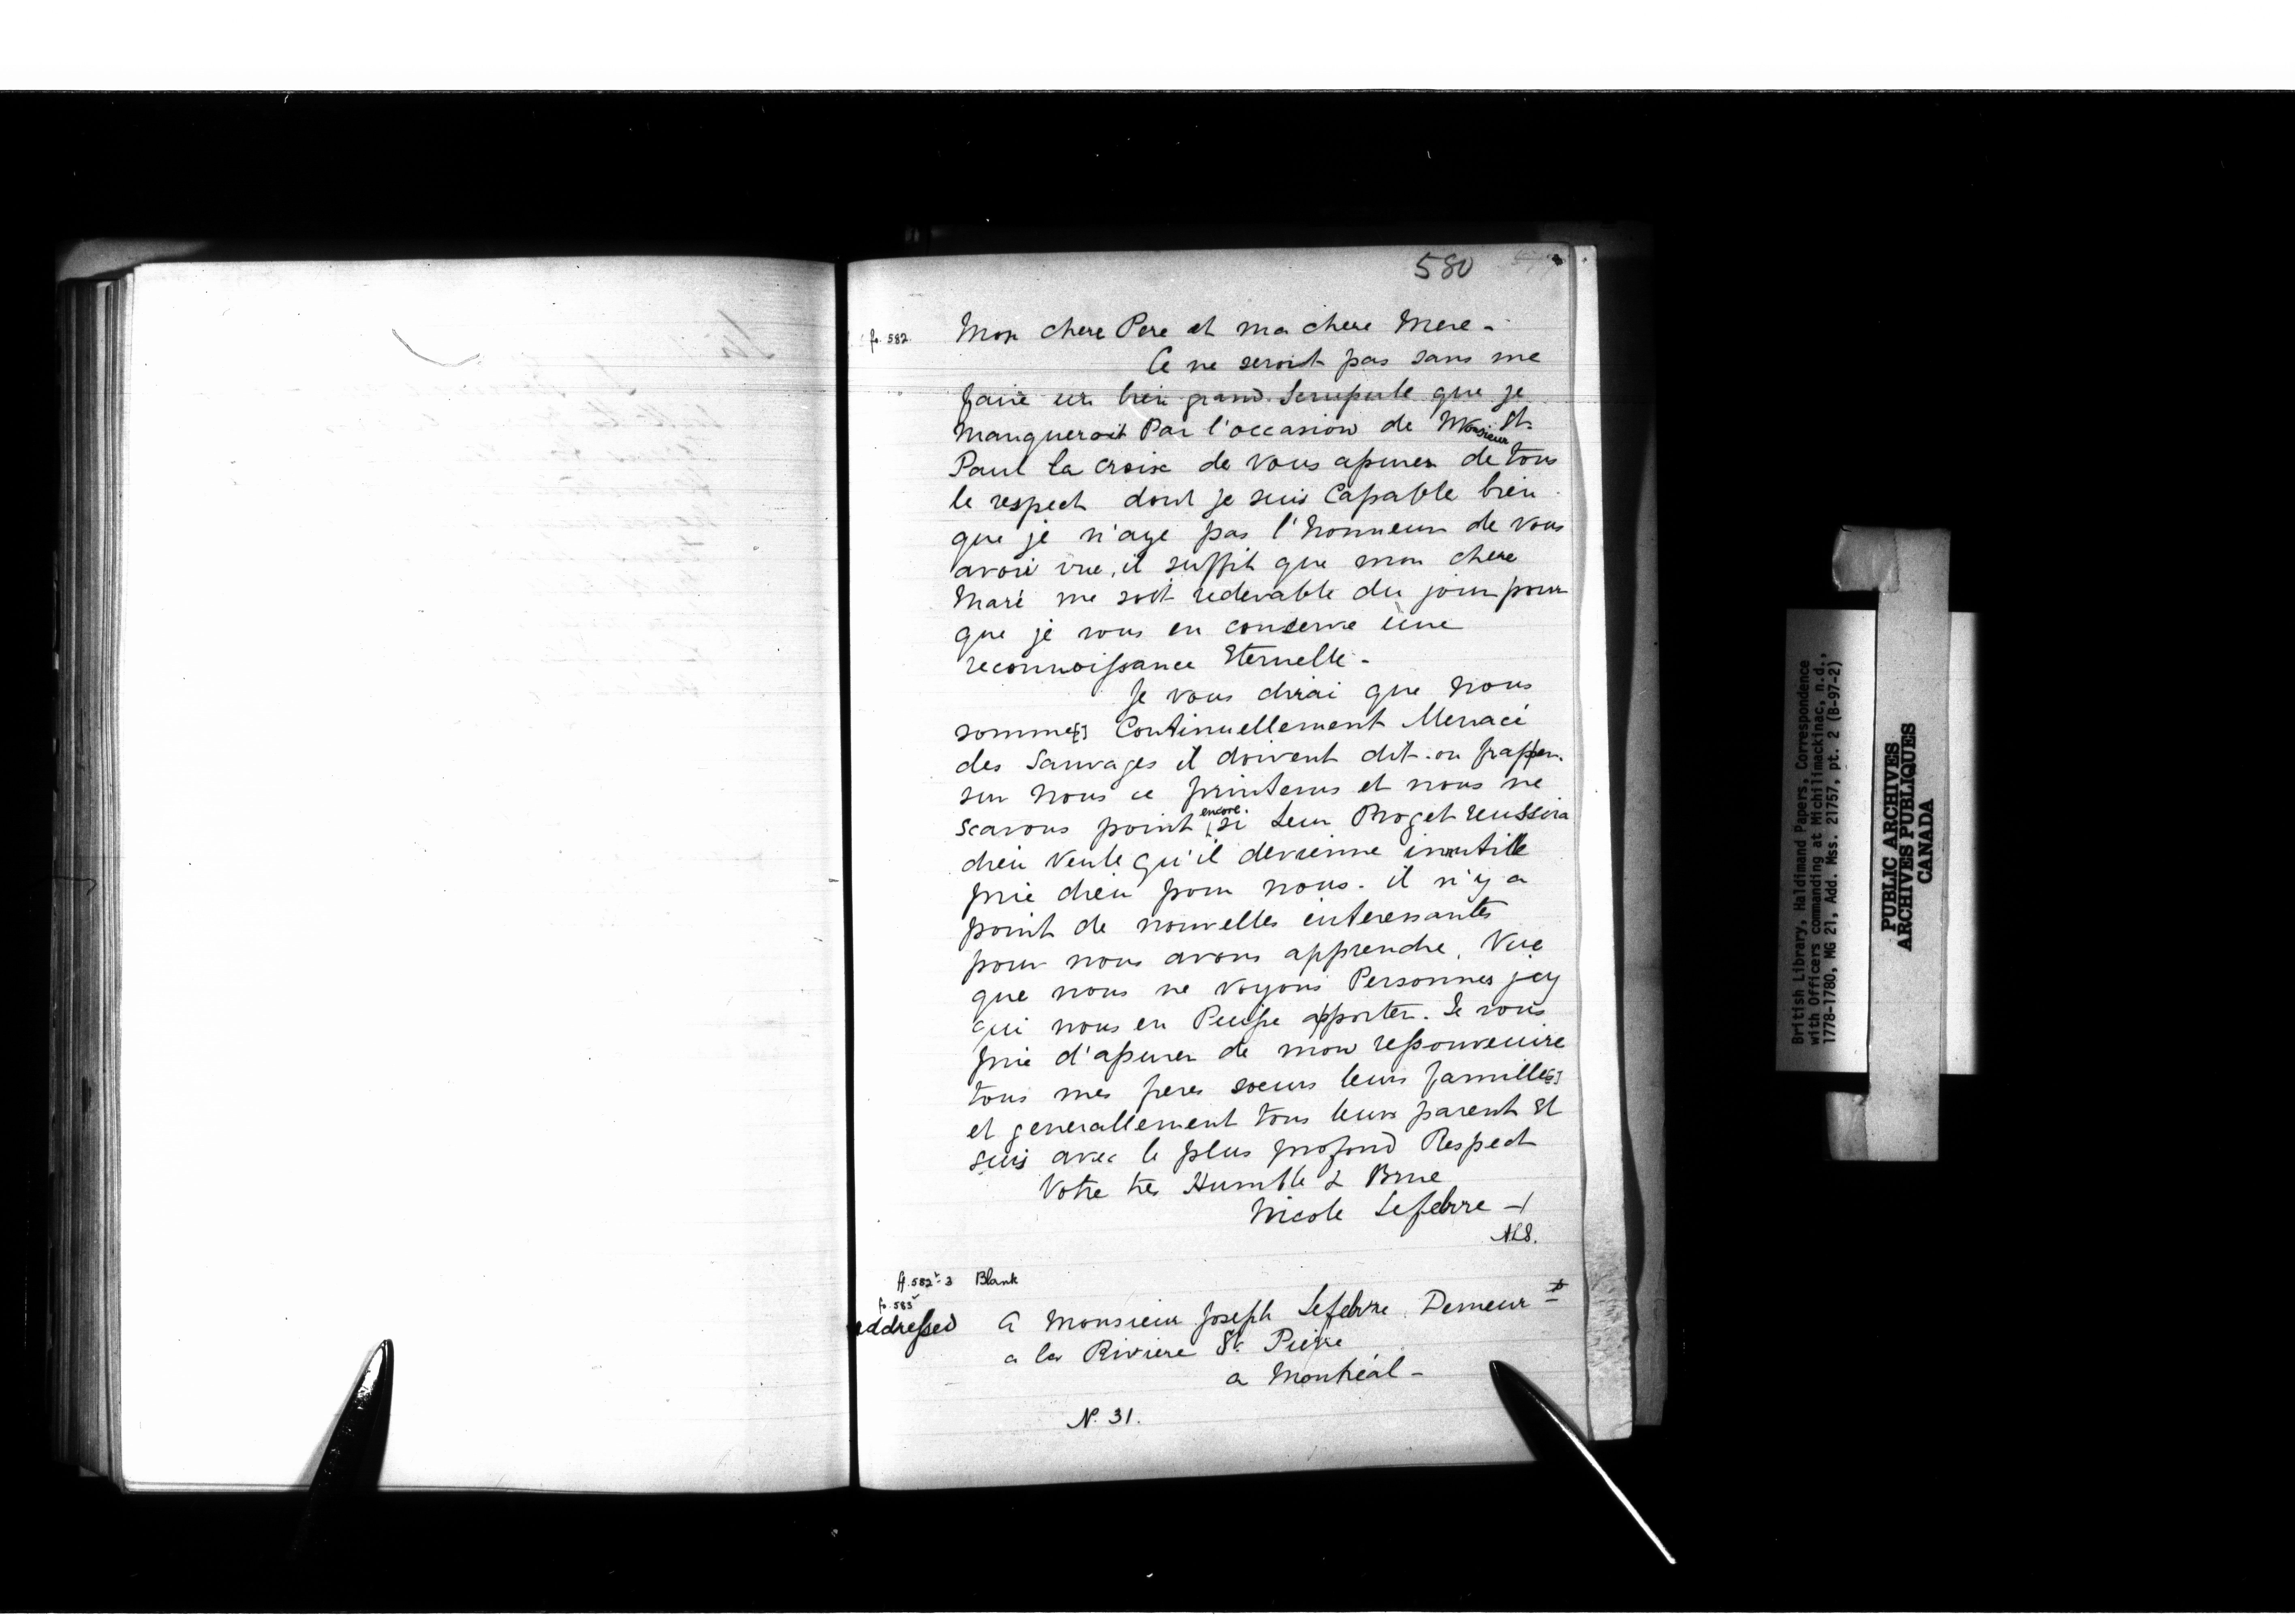 580
fo. 582. Mon chere Pere et ma chere Mere -
Ce ne seroit pas sans me
faire un bien grand. Scrupule que je
manqueroit Par l'occasion de Monsieur St.
Paul la croix de vous aſsurer de tous
le respect dont je suis Capable bien
que je n'aye pas l'honneur de vous
avoir vue, il suffit que mon chere
Maré me soit redevable du jour pour
que je vous en conserve une
reconnoiſsance Eternelle -
Je vous dirai que nous
somme[s] Continuellement Menacé
des Sauvages il doivent dit-on frapper
sur nous ce printems et nous ne
scavons point encore si Leur Proget reussira
dieu veule qu'il devienne inutille
prie dieu pour nous. il n'y a
point de nouvelles interessantes
pour nous avons apprendre, Vue
que nous ne voyons Personnes jcy
qui nous en Puiſse apporter. Je vous
prie d'aſsurer de mon reſsouvenire
tous mes freres soeurs leurs famille[s]
et generallement tous leurs parent Et
suis avec le plus profond Respect
Votre tres Humble & Brue
Nicole Lefebvre -
ALS.
ff. 582v-3 Blank
fo. 583v
addreſsed A Monsieur Joseph Lefebvre. Demeurt
a la Riviere St. Pierre
a Montréal -
N. 31.
British Library, Haldimand Papers, Correspondence
with Officers commanding at Michilimackinac, n.d.,
1778-1780, MG 21, Add. Mss. 21757, pt. 2 (B-97-2)
PUBLIC ARCHIVES
ARCHIVES PUBLIQUES
CANADA